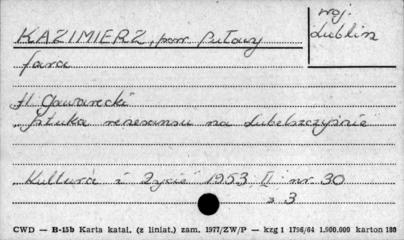 woj.
Lublin
KAZIMIERZ, pow. Puławy
fara
H. Gawarecki
"Sztuka renesansu na Lubelszczyźnie"
"Kultura i Życie" 1953, II nr 30
s. 3
CWD — B-15b Karta katal. (z liniat.) zam. 1977/ZW/P — kzg 1 1796/64 1.900.000 karton 180